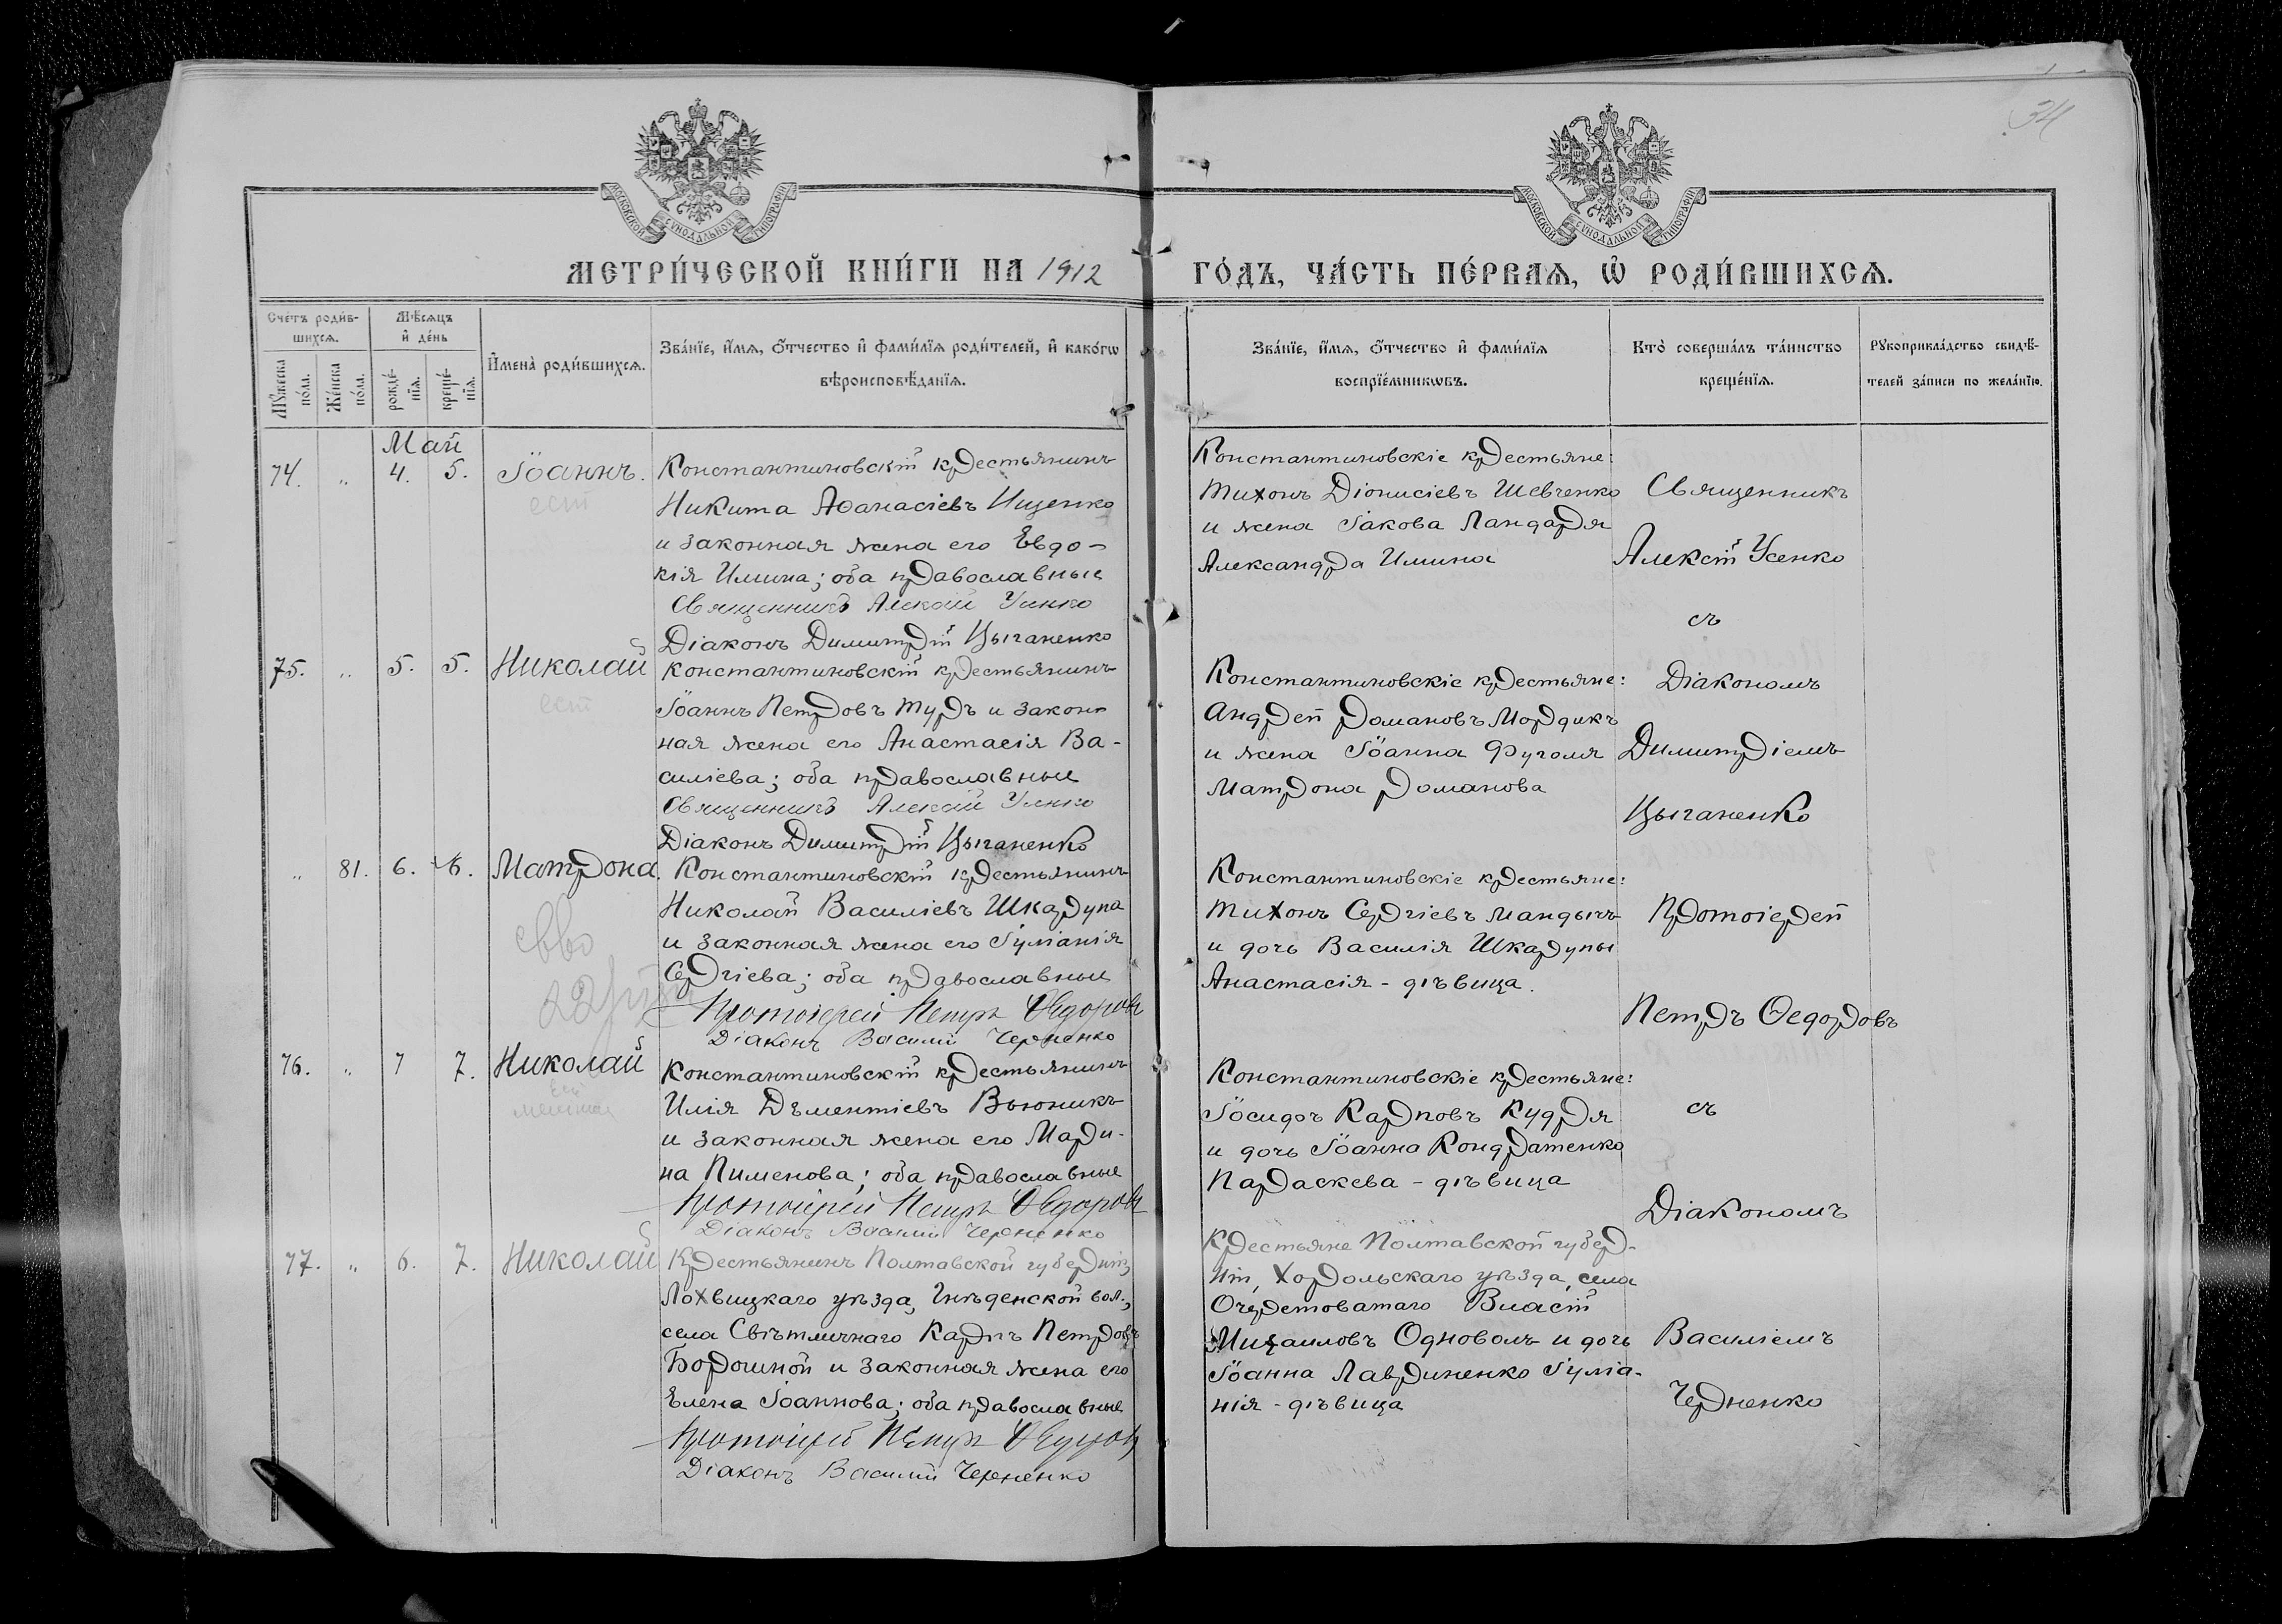 34
МОСКОВСКОЙ СѴНОДАЛЬНОЙ ТИПОГРАФІИ
МОСКОВСКОЙ СѴНОДАЛЬНОЙ ТИПОГРАФІИ
МЕТРИ́ЧЕСКОЙ КНИ́ГИ НА 1912
ГО́ДЪ, ЧА́СТЬ ПЕ́РВАѦ, Ѡ҆ РОДИ́ВШИХСѦ.
Сче́тъ роди́в-
шихсѧ.
Мꙋ́жеска по́ла.
Же́нска по́ла.
Мѣ́сѧцъ
и҆ де́нь
рожде́-нїѧ.
креще́-нїѧ.
И҆мена̀ роди́вшихсѧ.
Зва́нїе, и҆́мѧ, ѻ҆́тчество и҆ фами́лїѧ роди́телей, и҆ како́гѡ
вѣроисповѣ́данїѧ.
Зва́нїе, и҆́мѧ, ѻ҆́тчество и҆ фами́лїѧ
воспрїе́мникѡвъ.
Кто̀ соверша́лъ та́инство
креще́нїѧ.
Рꙋкоприкла́дство свидѣ́-
телей за́писи по жела́нїю.
Май
74. „ 4. 5. Іоаннъ.
Константиновскій крестьянинъ
Никита Аѳанасіевъ Ищенко
и законная жена его Евдо-
кія Илина; оба православные
Священникъ Алексій Усенко
Діаконъ Димитрій Цыганенко
Константиновскіе крестьяне:
Тихонъ Діонисіевъ Шевченко
и жена Іакова Ландаря
Александра Илина
Священникъ
Алексій Усенко
съ
75. „ 5. 5. Николай
Константиновскій крестьянинъ
Іоаннъ Петровъ Туръ и закон-
ная жена его Анастасія Ва-
силіева; оба православные
Священникъ Алексій Усенко
Діаконъ Димитрій Цыганенко
Константиновскіе крестьяне:
Андрей Романовъ Мордикъ
и жена Іоанна Фуголя
Матрона Романова
Діакономъ
Димитріемъ
Цыганенко
„ 81. 6. 6. Матрона.
Константиновскій крестьянинъ
Николай Василіевъ Шкарупа
и законная жена его Іуліанія
Сергіева; оба православные
Протоіерей Петръ Ѳедоровъ
Діаконъ Василій Черненко
Константиновскіе крестьяне:
Тихонъ Сергіевъ Мандычъ
и дочь Василія Шкарупы
Анастасія - дѣвица.
Протоіерей
Петръ Ѳедоровъ
76. „ 7 7. Николай
Константиновскій крестьянинъ
Илія Дѣментіевъ Вьюникъ
и законная жена его Мари-
на Пименова; оба православные
Протоіерей Петръ Ѳедоровъ
Діаконъ Василій Черненко
Константиновскіе крестьяне:
Іосифъ Карповъ Кудря
и дочь Іоанна Кондратенко
Параскева - дѣвица
съ
Діакономъ
77. „ 6. 7. Николай
Крестьянинъ Полтавской губерніи,
Лохвицкаго уѣзда, Гнѣденской вол.,
села Свѣтличнаго Карпъ Петровъ
Борошной и законная жена его
Елена Іоаннова; оба православные
Протоіерей Петръ Ѳедоровъ
Діаконъ Василій Черненко
Крестьяне Полтавской губер-
ніи, Хорольскаго уѣзда, села
Очеретоватаго Власій
Михаиловъ Одноволъ и дочь
Іоанна Лавриненко Іуліа-
нія - дѣвица
Василіемъ
Черненко